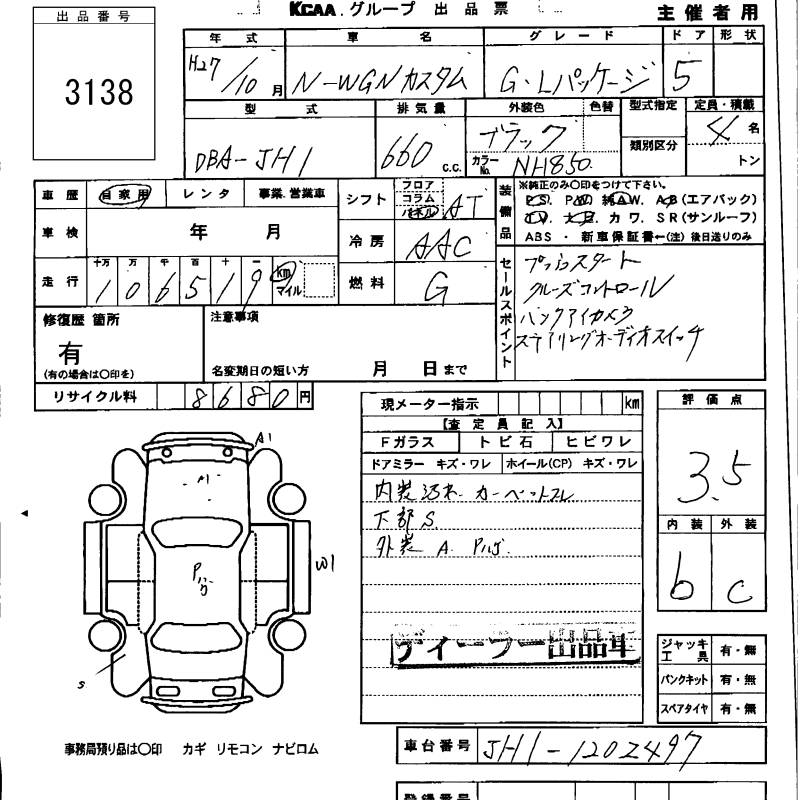 KCAA.グループ 出品票
主催者用
出品番号
3138
年式 車名 グレード ドア 形状
H27/10月 N-WGNカスタム G・Lパッケージ 5
型式 排気量 外装色 色替 型式指定 定員・積載
DBA-JH1 660 c.c. ブラック 類別区分 4 名
カラーNo. NH850. トン
車歴 自家用 レンタ 事業.営業車
シフト フロア コラム パネル AT
装備品 ※純正のみ〇印をつけて下さい。
P.S. P.W 純A.W. A.B(エアバック)
カワ. SR(サンルーフ)
ABS ・ 新車保証書←(注) 後日送りのみ
車検 年 月
冷房 AAC
走行 十万 万 千 百 十 一
106519 km マイル
燃料 G
セールスポイント
プッシュスタート
クルーズコントロール
バックアイカメラ
ステアリングオーディオスイッチ
修復歴 箇所
有
(有の場合は〇印を)
注意事項
名変期日の短い方 月 日まで
リサイクル料 8680円
現メーター指示 km
【査定員記入】
Fガラス トビ石 ヒビワレ
ドアミラー キズ・ワレ ホイール(CP) キズ・ワレ
内装汚れ カーペットスレ
下部S.
外装 A. Pハゲ.
ディーラー出品車
評価点
3.5
内装 外装
b c
A1
A1
Pハゲ
W1
S
ジャッキ工具 有・無
パンクキット 有・無
スペアタイヤ 有・無
事務局預り品は〇印 カギ リモコン ナビロム
車台番号 JH1-1202497
登録番号